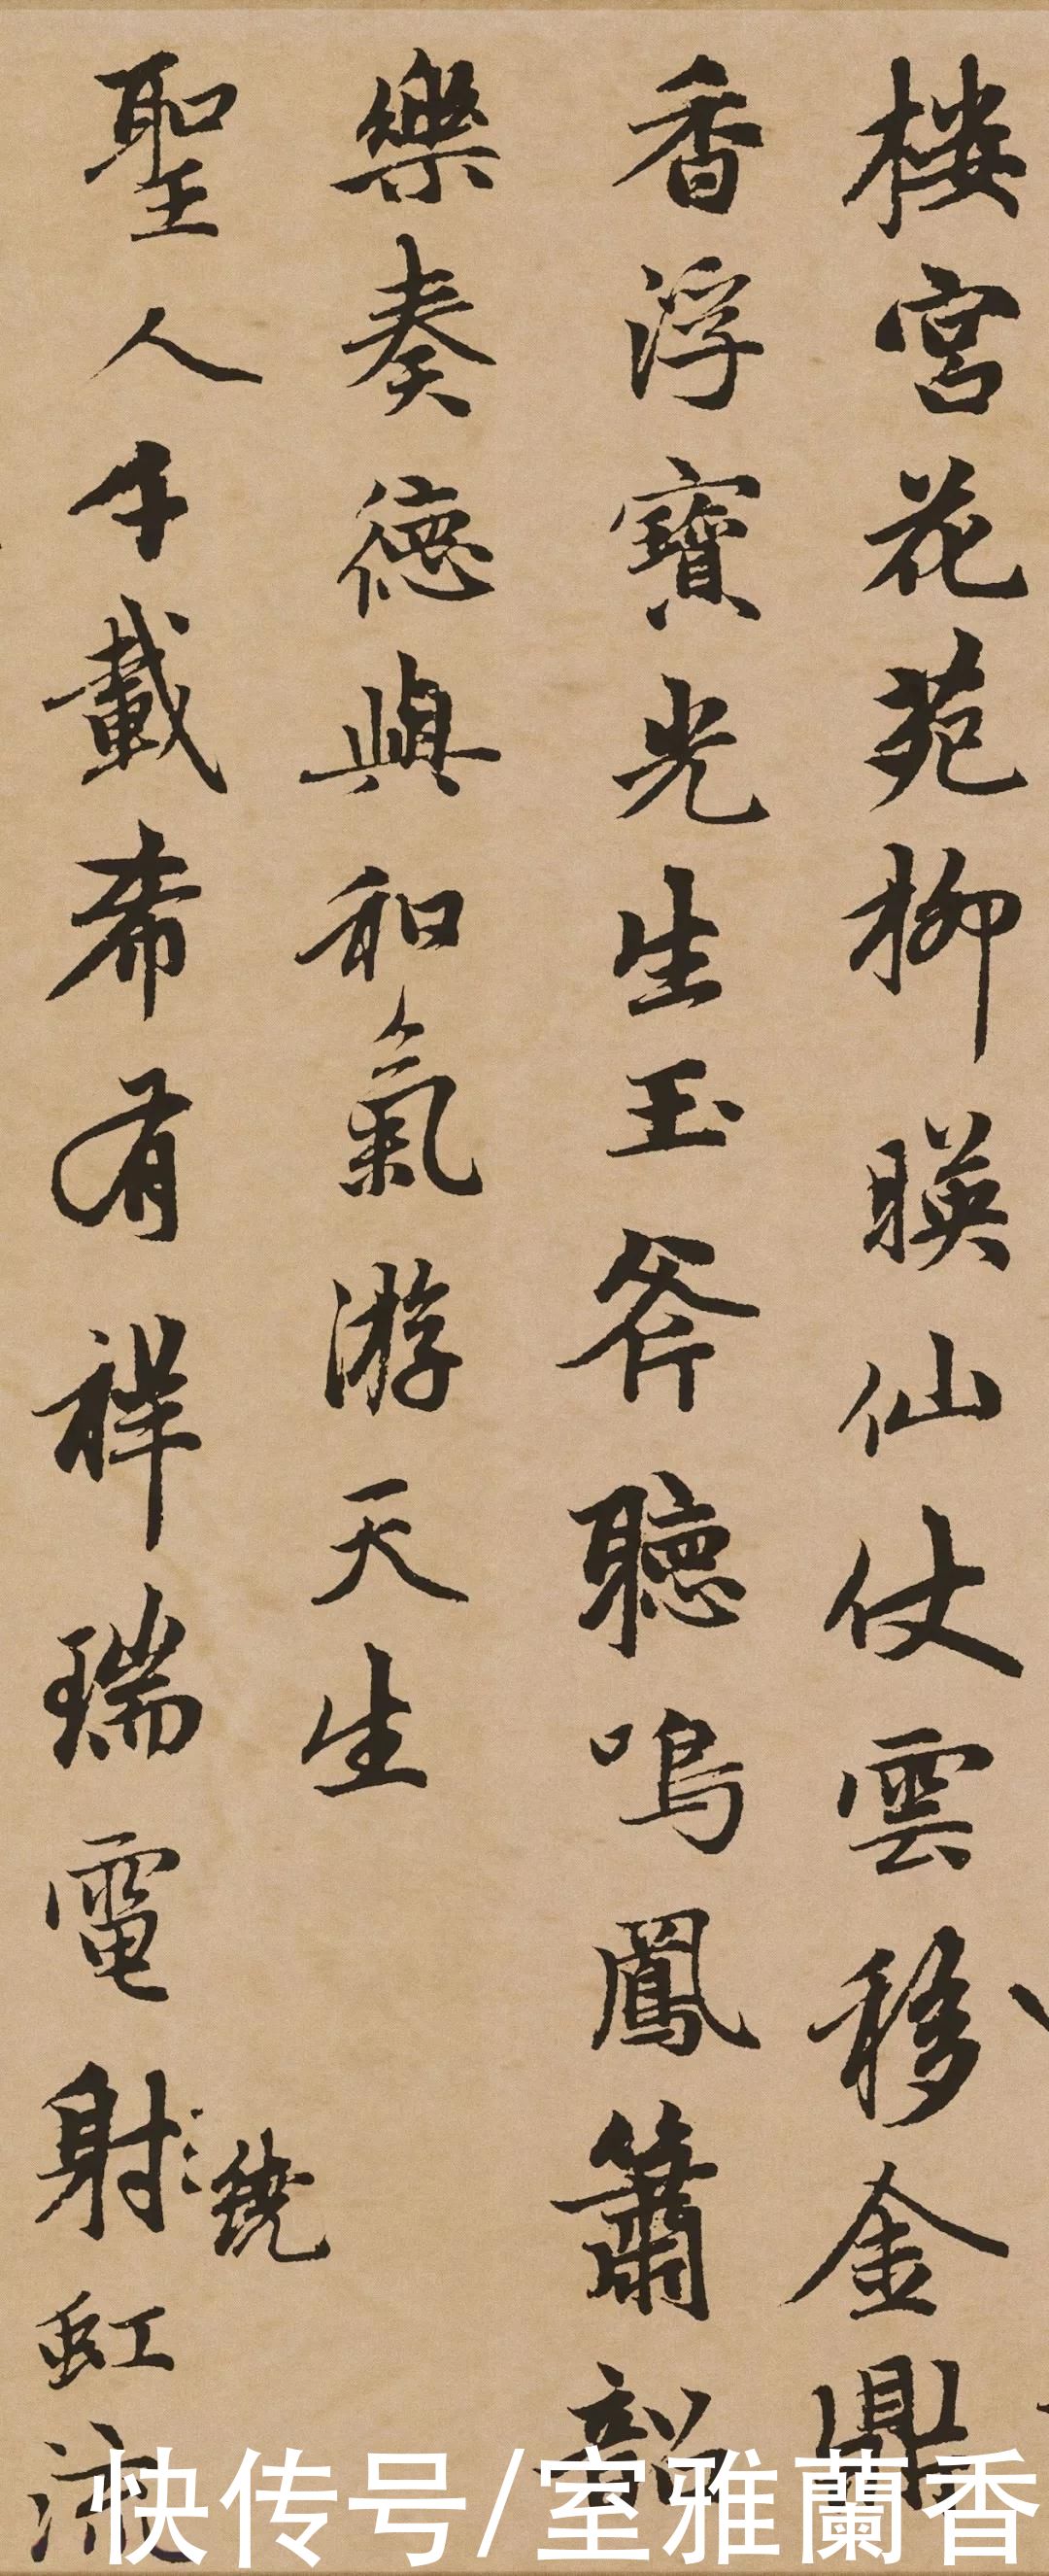 楼宫花苑柳暎仙仗雲移金鼎
香浮寶光生玉斧聽鳴鳳簫韶
樂奏德與和氣游天生
聖人千載希有祥瑞電射虹流
繞
快传号/室雅蘭香